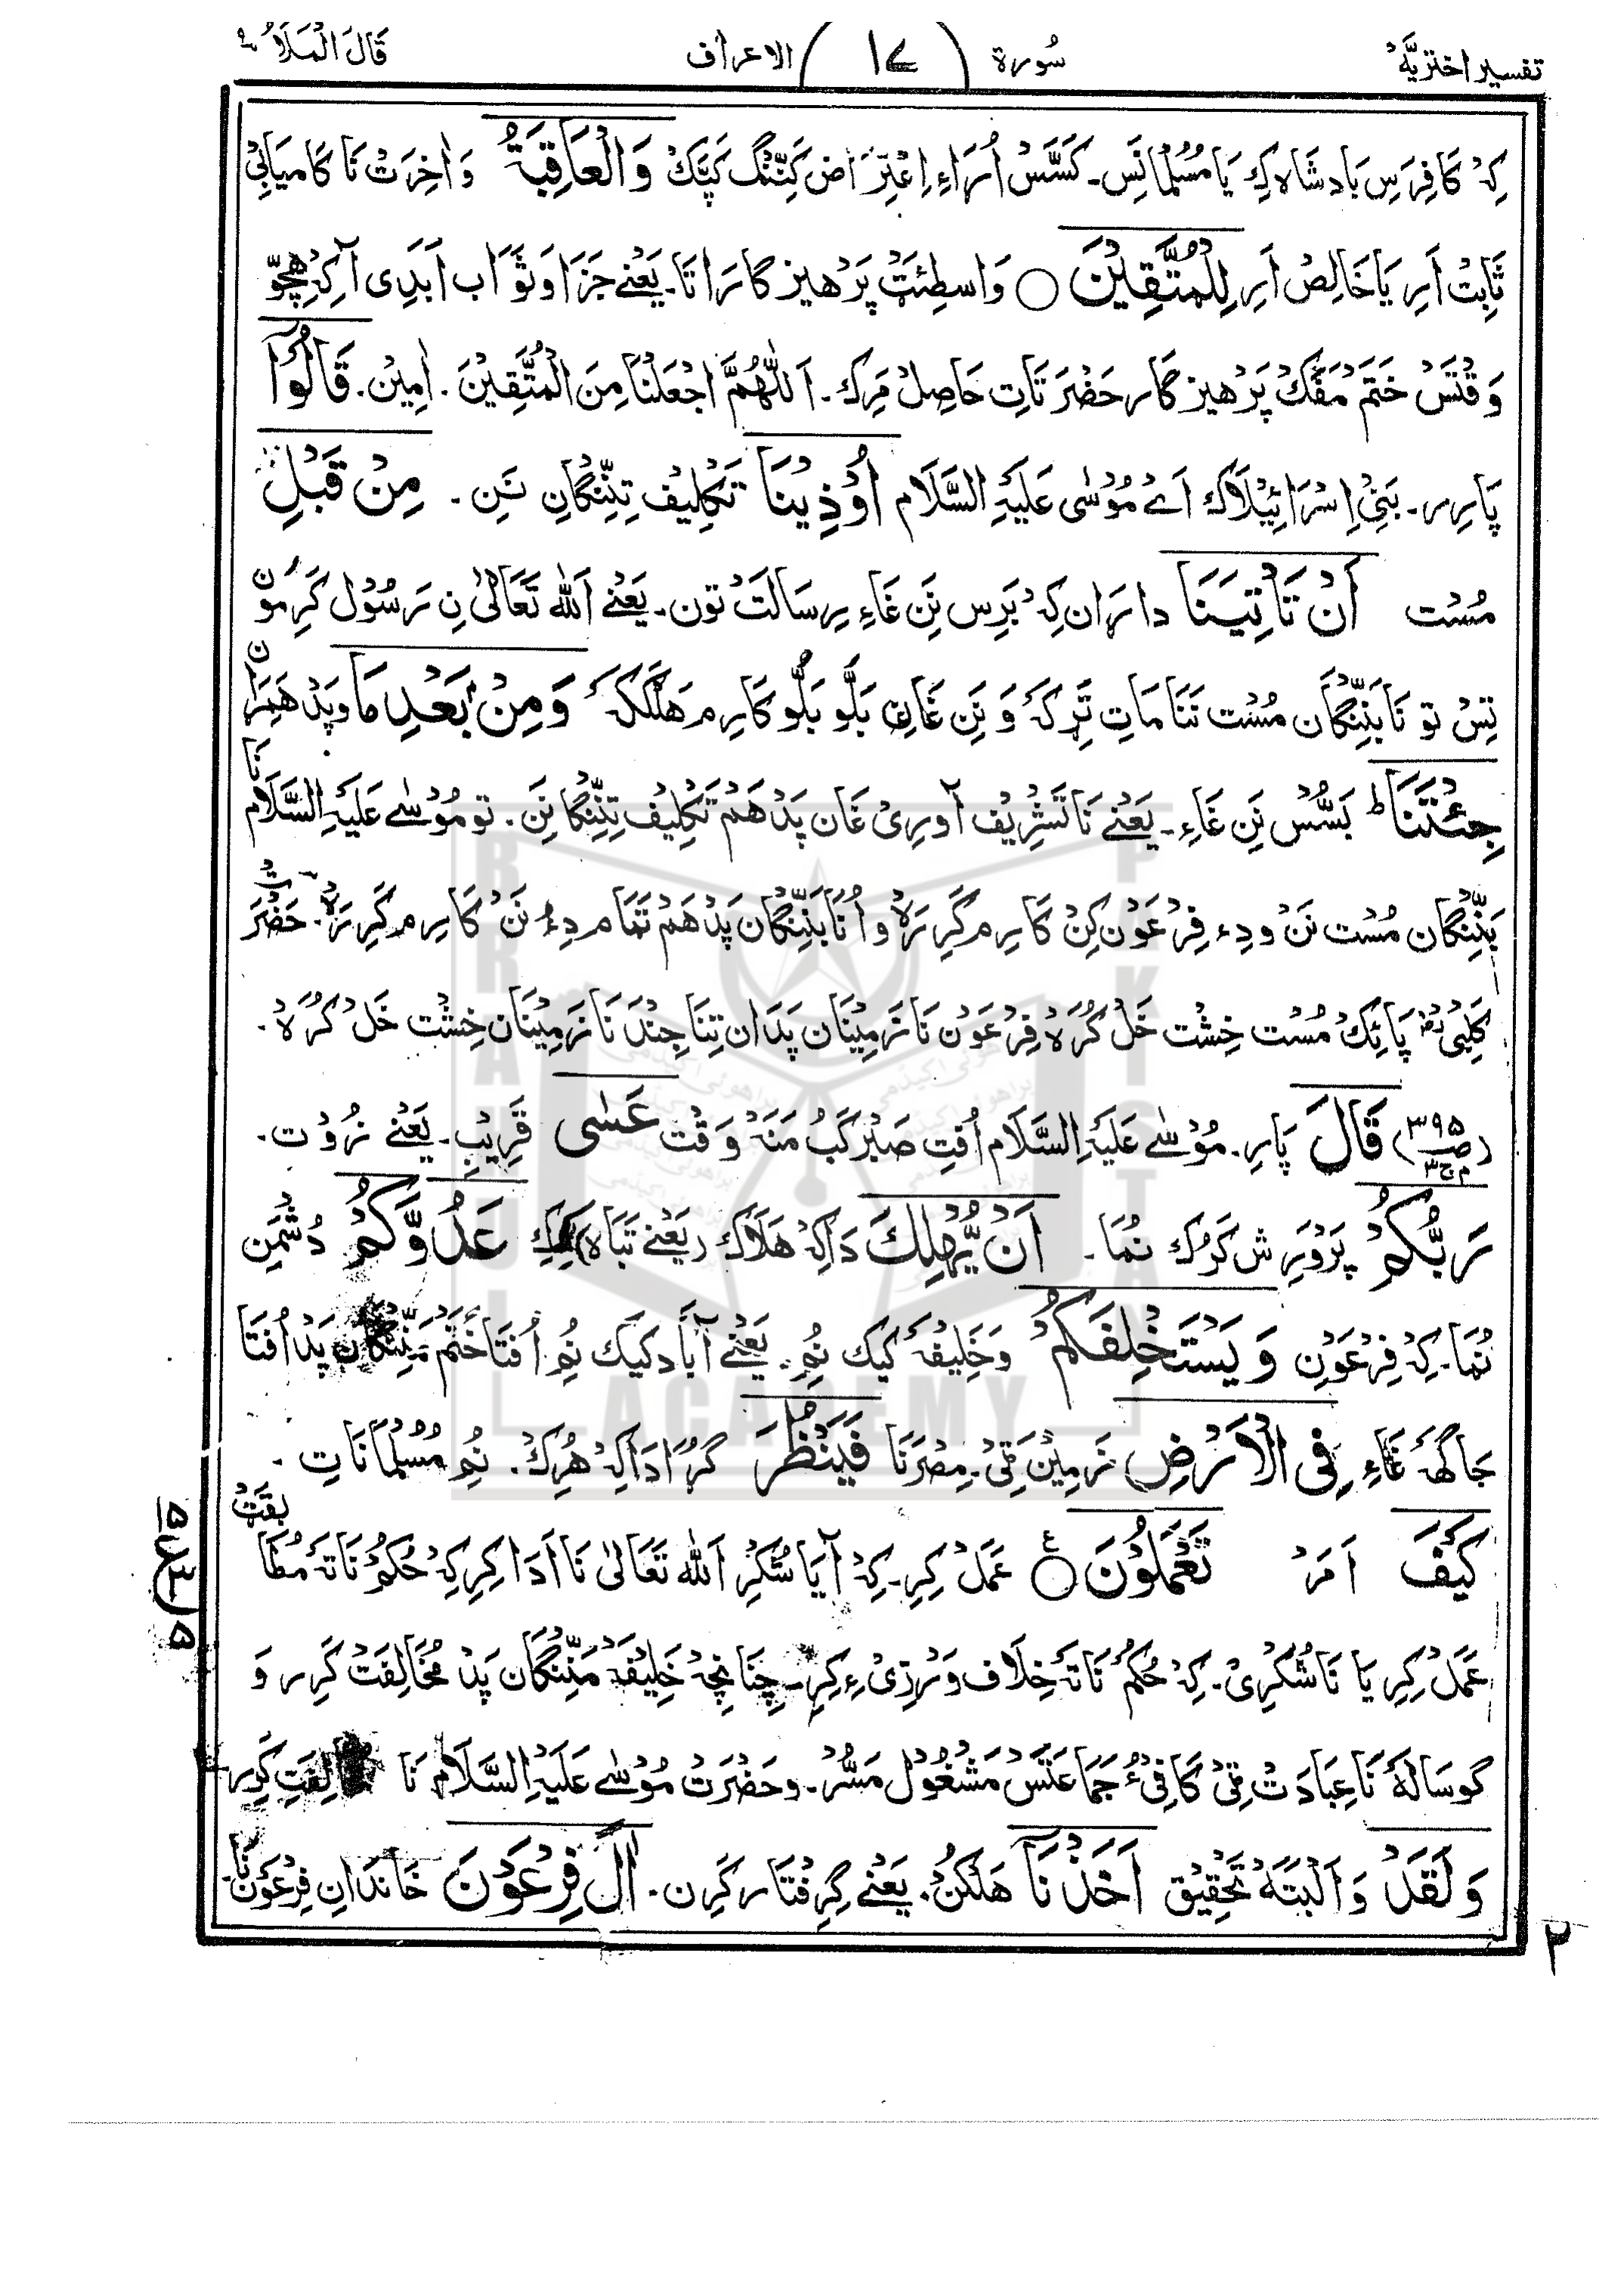 تفسیر اختریَّہ سُورۃ (۱۷) الاعراف قَالَ الْمَلَاُ ۹
کِہ کَافِرَس بَادشَاہ کِ یَا مُسُلمَانَس۔ کَسَّس اُرَاءِ اِعْتِرَاض کَنِّنگ کَپَّکْ وَالْعَاقِبَۃُ وَاٰخِرَتْ نَا کَامیَابِیْ
ثَابِتْ اَرِ یَا خَالِصْ اَرِ لِلْمُتَّقِیْنَ ○ وَاسطِئَتْ پَرْھیز گَارَاتَا۔ یَعْنے جَزَا وَثَوَاب اَبَدِی آ کِہْ ھِچّو
وَقْتَسْ خَتَمْ مَفَّکْ پَرْھیز گَار حَضْرَتَاتِ حَاصِلْ مَرِک۔ اَللّٰھُمَّ اجْعَلْنَا مِنَ الْمُتَّقِیْنَ۔ اٰمِیْن۔ قَالُوْآ
پَارِر۔ بَنِیْ اِسْرَائِیْلَاک اَےْ مُوْسٰی عَلَیْہِ السَّلَام اُوْذِیْنَا تَکْلِیفْ تِنِّنگَانِ نَنِ۔ مِنْ قَبْلِ
مُسْت اَنْ تَاْتِیَنَا دَارَان کِہ بَرِس نَن غَاءِ رِسَالَتْ تون۔ یَعْنے اَللّٰہ تَعَالیٰ نِ رَسُوْل کَرِ مُوْن
تِسْ تو نَا بَنِّنگَان مُسْت نَنَا مَاتِ تَرِکَہ وَ نَن غَان بَلُّو بَلُّو کَارِم ھَلَّکَہ وَمِنْ بَعْدِ مَا وپَدْ ھَمِرَان
جِئْتَنَا ط بَسُّسْ نَن غَاءِ۔ یَعْنے نَا تَشْرِیفْ آورِیْ غَان پَدْ ھَمْ تَکْلِیفْ تِنِّنگَا نَن۔ تو مُوْسٰے عَلَیْہِ السَّلَام نَا
بَنِّنگَان مُسْت نَنْ وِدِء فِرْعَوْن کِنْ کَارِم کَرِرَہْ وَ اُنَا بَنِّنگَان پَدْ ھَمْ تَمَام دِءْ نَنْ کَارِم کَرِرَہْ۔ حَضْرَتْ
کَلِبیْ پَائِکْ مُسْت خِشْت خَلْ کُرَہْ فِرْعَوْن نَا زَمِیْنَان پَدَان تِنَا جِنْدَ نَا زَمِیْنَان خِشْت خَلْ کُرَہْ۔
(ص ۳۹۵ م ج ۳) قَالَ پَارِ۔ مُوْسٰے عَلَیْہِ السَّلَام اُفتِ صَبْر کَبُ مَنَہ وَقْت عَسٰی قَرِیْبِ۔ یَعْنے زُوْت۔
رَبُّکُمْ پَرْوَرِش کَرُک نُمَا۔ اَنْ یُّھْلِکَ دَاکِہْ ھَلَاک (یَعْنے تَبَاہ) کِک عَدُوَّکُمْ دُشْمَنِ
نُمَا۔ کِہ فِرْعَوْن وَیَسْتَخْلِفَکُمْ وَخَلِیْفَہ کِیک نُم۔ یَعْنے آبَاد کِیک نُم اُفتَا خَتَمْ مَنِّنگَان پَدْ اُفتَا
جَاگَھ غَاءِ فِی الْاَرْضِ زَمِیْن تِیْ۔ مِصْرَنَا فَیَنْظُرَ گُڑَا دَاکِہْ ھُرِکْ۔ نُم مُسُلمَانَاتِ۔
کَیْفَ اَمَرْ تَعْمَلُوْنَ ○ عَمَلْ کِرِ۔ کِہْ آیَا شُکْرِ اَللّٰہ تَعَالیٰ نَا اَدَا کِرِ کِہْ حُکُمْ نَاتَہ مُطَابِقَتْ
عَمَلْ کِرِ یَا نَاشُکْرِیْ۔ کِہْ حُکُمْ نَاتَہ خِلَاف وَرْزِیْ ءِ کِرِ۔ چِنَانِچِہْ خَلِیْفَہ مَنِّنگَان پَدْ مُخَالِفَتْ کَرِر وَ
گوسَالَہْ نَا عِبَادَتْ تِیْ کَافِیْ جَمَاعَتَسْ مَشْغُوْل مَسُّرْ۔ وحَضْرَتْ مُوْسٰے عَلَیْہِ السَّلَام نَا کَرِر
وَلَقَدْ وَاَلْبَتَّہْ تَحْقِیْق اَخَذْنَآ ھَلْکُنْ۔ یَعْنے گِرِفْتَار کَرِن۔ اٰلَ فِرْعَوْنَ خَانْدَانِ فِرْعَوْن نَا۔
۲